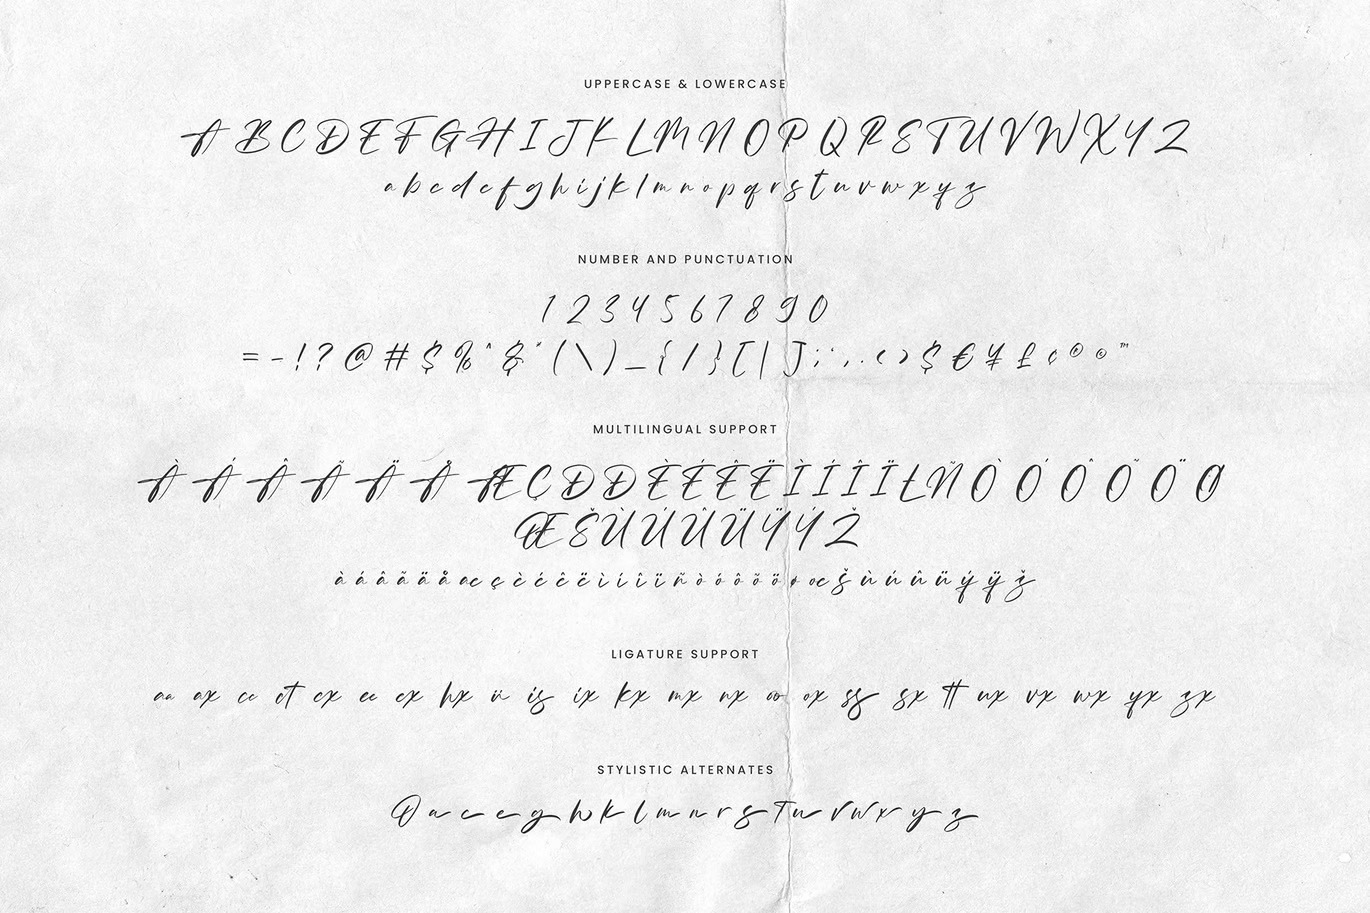 UPPERCASE & LOWERCASE
A B C D E F G H I J K L M N O P Q R S T U V W X Y Z
a b c d e f g h i j k l m n o p q r s t u v w x y z
NUMBER AND PUNCTUATION
1 2 3 4 5 6 7 8 9 0
= - ! ? @ # $ % ^ & * ( \ ) _ { / } [ | ] ; : , . < > $ € ¥ £ ¢ ® © ™
MULTILINGUAL SUPPORT
À Á Â Ã Ä Å Æ Ç Ð Đ È É Ê Ë Ì Í Î Ï Ł Ñ Ò Ó Ô Õ Ö Ø
Œ Š Ù Ú Û Ü Ÿ Ý Ž
à á â ã ä å æ ç è é ê ë ì í î ï ñ ò ó ô õ ö ø œ š ù ú û ü ý ÿ ž
LIGATURE SUPPORT
aa ax cc ct cx ee ex hx ii is ix kx mx nx oo ox ss sx tt ux vx wx yx zx
STYLISTIC ALTERNATES
O a c e g h k l m n r s t u v w x y z